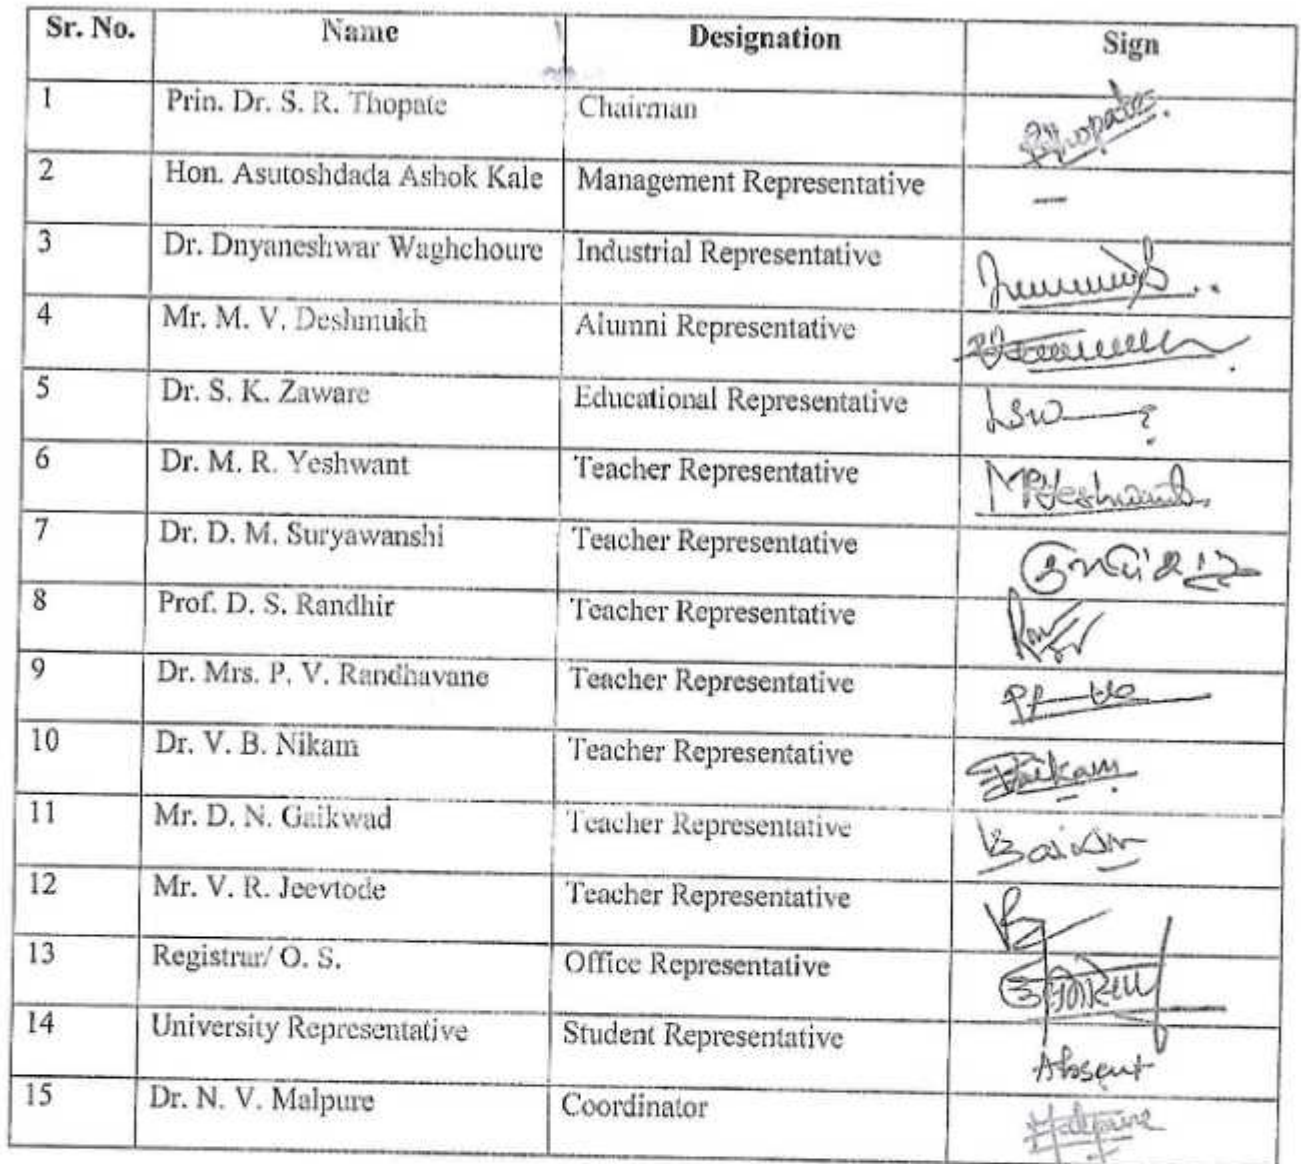 Sr. No. Name Designation Sign
1 Prin. Dr. S. R. Thopate Chairman Thopates.
2 Hon. Asutoshdada Ashok Kale Management Representative —
3 Dr. Dnyaneshwar Waghchoure Industrial Representative
4 Mr. M. V. Deshmukh Alumni Representative
5 Dr. S. K. Zaware Educational Representative
6 Dr. M. R. Yeshwant Teacher Representative MRYeshwant
7 Dr. D. M. Suryawanshi Teacher Representative
8 Prof. D. S. Randhir Teacher Representative
9 Dr. Mrs. P. V. Randhavane Teacher Representative
10 Dr. V. B. Nikam Teacher Representative
11 Mr. D. N. Gaikwad Teacher Representative
12 Mr. V. R. Jeevtode Teacher Representative
13 Registrar/ O. S. Office Representative
14 University Representative Student Representative Absent
15 Dr. N. V. Malpure Coordinator Malpure